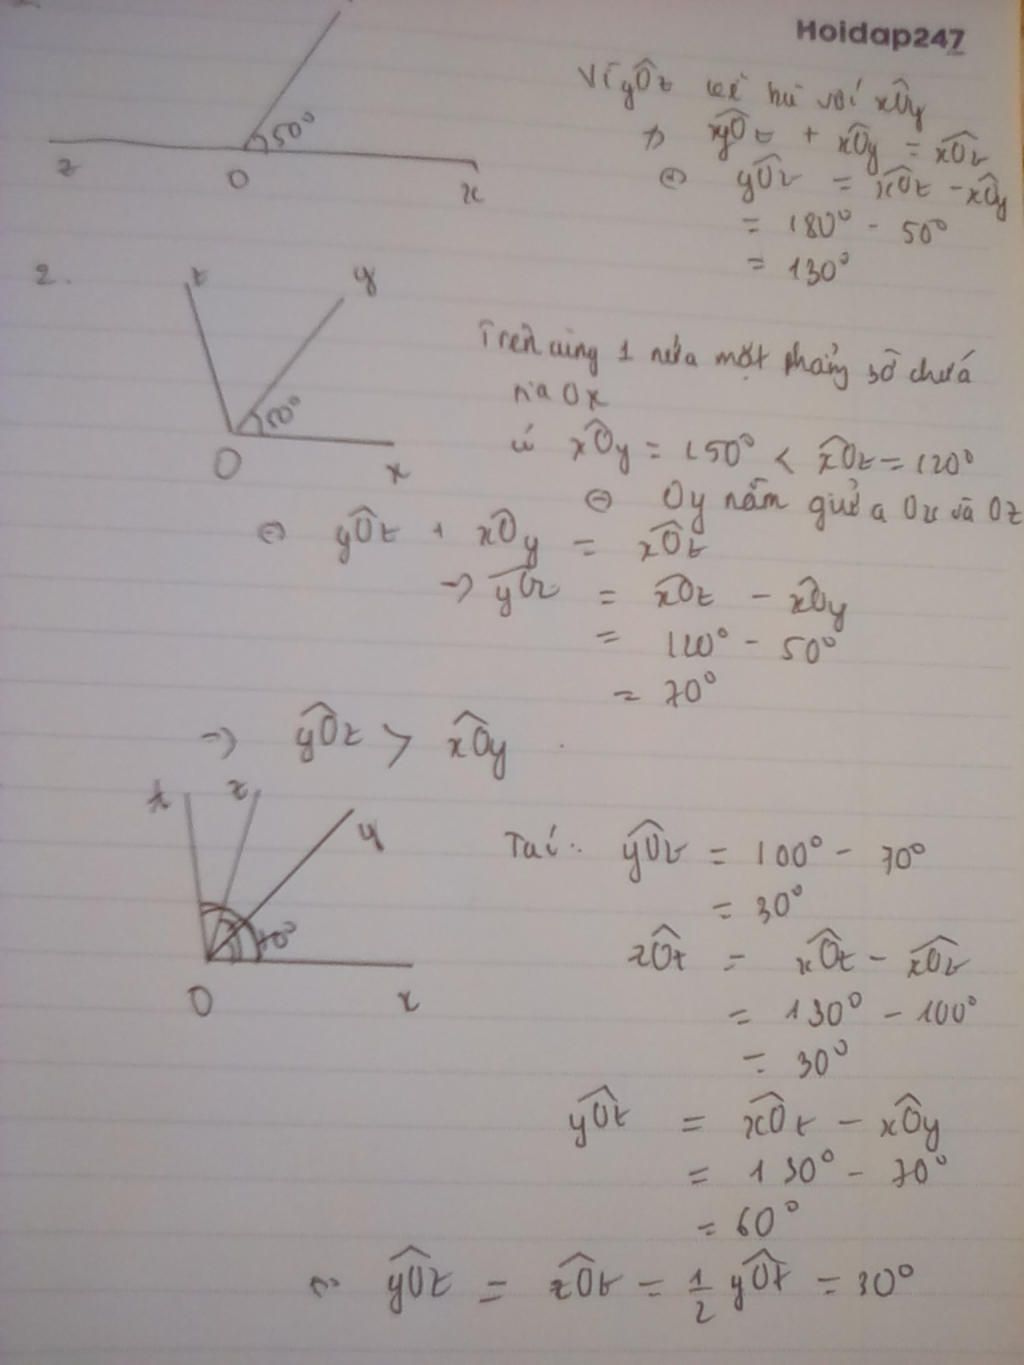 Hoidap247
50°
z
O
x
Vì yÔz kề bù với xÔy
=> xyÔz + xÔy = xÔz
<=> yÔz = xÔz - xÔy
= 180° - 50°
= 130°
2.
z
y
50°
O
x
Trên cùng 1 nửa mặt phẳng bờ chứa
tia Ox
có xÔy = 150° < xÔz = 120°
Oy nằm giữa Ox và Oz
yÔz + xÔy = xÔz
=> yÔz = xÔz - xÔy
= 120° - 50°
= 70°
=> yÔz > xÔy
t
z
y
70°
O
x
yÔz = 100° - 70°
= 30°
zÔt = xÔt - xÔz
= 130° - 100°
= 30°
yÔt = xÔt - xÔy
= 130° - 70°
= 60°
=> yÔz = zÔt = 1/2 yÔt = 30°